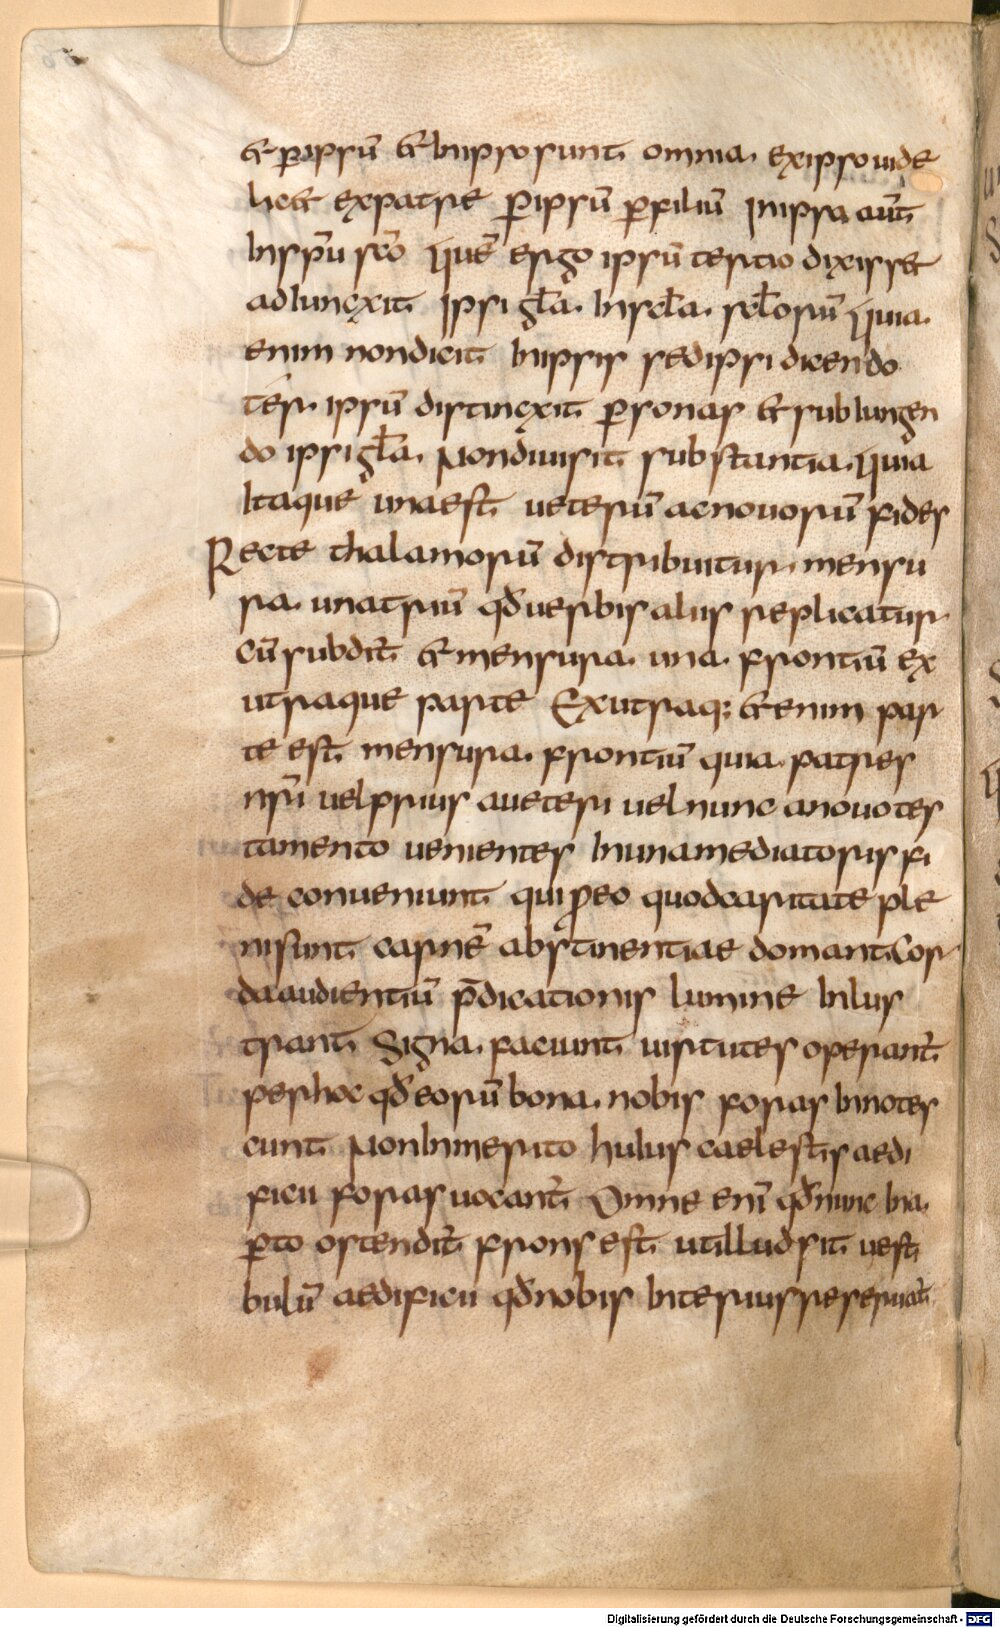 et p̱ ipsū et in ipso sunt omnia. ex ipso uide
licet ex patre p̱ ipsū p̱ filiū In ipso aūt
in sp̄u sc̄o Quē ergo ipsū tertio dixisset
adiunexit Ipsi gl̄a. In scl̄a. scl̄orū Quia.
enim non dicit in ipsis sed ipsi dicendo
ter. ipsū distinexit p̱sonas et subiungen
do ipsi gl̄a. Non diuisit substantia. Quia
itaque una est ueterū ac nouorū fides
Recte thalamorū distribuitur. mensu
ra. una triū qđ uerbis aliis replicatur
cū subdit̄ et mensura. una. frontiū ex
utraque parte Ex utraq; et enim par
te est mensura. frontiū quia. patres
nr̄i uel prius a ueteri uel nunc a nouo tes
tamento uenientes in una mediatoris fi
de conueniunt qui ꝓ eo quod caritate ple
ni sunt carnē abstinentiae domant Cor
da audientiū p̄dicationis lumine inlus
trant Signa. faciunt uirtutes operant̄
per hoc qđ eorū bona. nobis foras innotes
cunt Non inmerito huius caelestis aedi
ficii foras uocant̄ Omne enī qđ nunc in a.
p̱to ostendit̄ frons est ut illud sit uesti
bulū aedificii qđ nobis interius reseruat̄
Digitalisierung gefördert durch die Deutsche Forschungsgemeinschaft - DFG